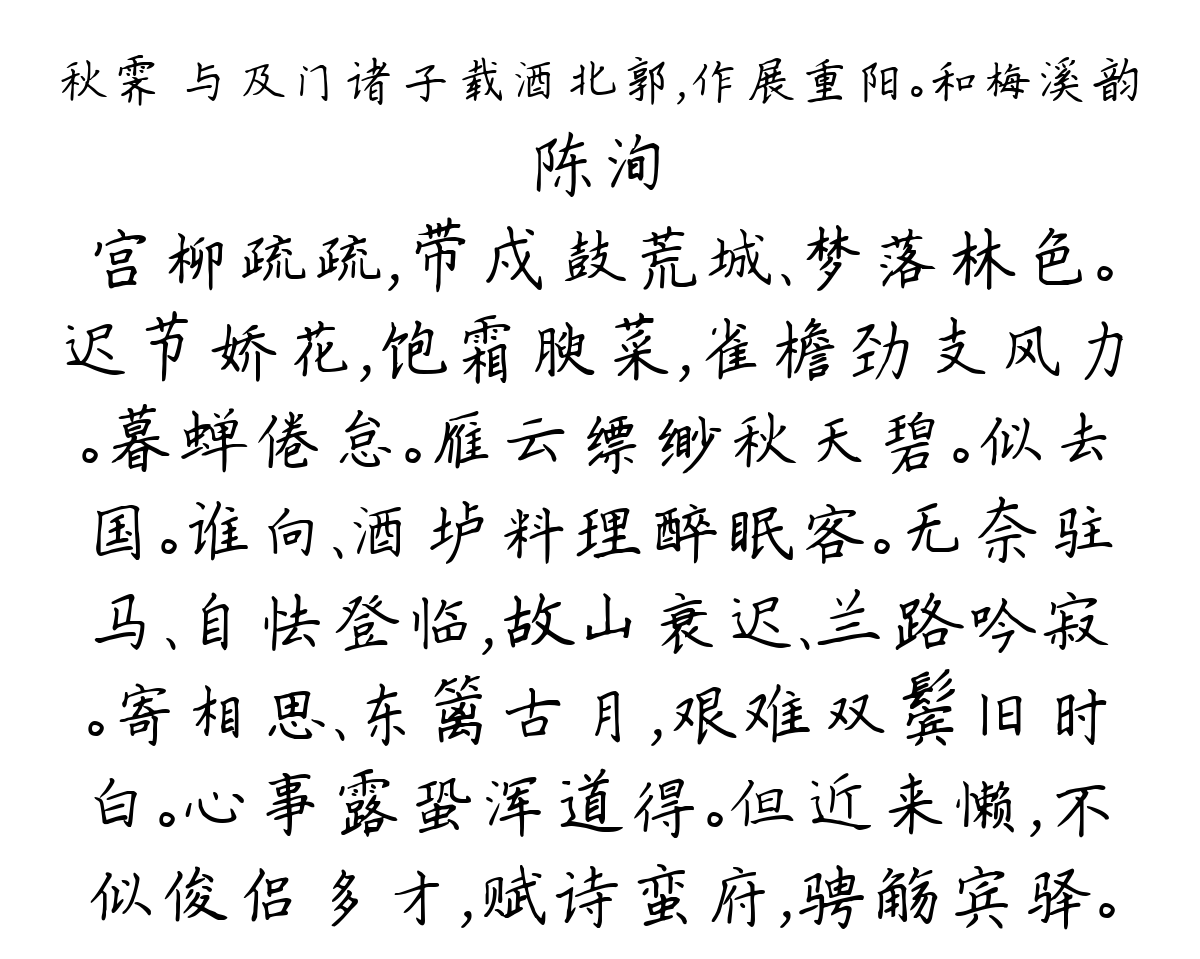 秋霁 与及门诸子载酒北郭,作展重阳。和梅溪韵
陈洵
宫柳疏疏,带戍鼓荒城、梦落林色。
迟节娇花,饱霜腴菜,雀檐劲支风力
。暮蝉倦怠。雁云缥缈秋天碧。似去
国。谁向、酒垆料理醉眠客。无奈驻
马、自怯登临,故山衰迟、兰路吟寂
。寄相思、东篱古月,艰难双鬓旧时
白。心事露蛩浑道得。但近来懒,不
似俊侣多才,赋诗蛮府,骋觞宾驿。